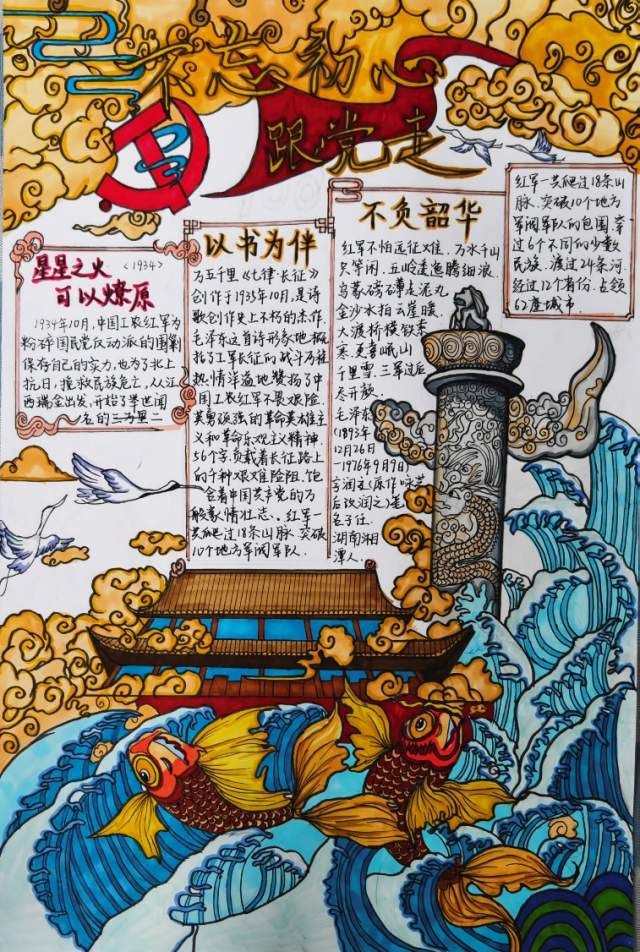 不忘初心
跟党走
星星之火
<1934>
可以燎原
1934年10月,中国工农红军为
粉碎国民党反动派的围剿
保存自己的实力,也为了北上
抗日,挽救民族危亡,从江
西瑞金出发,开始了举世闻
名的三万里二
以书为伴
万五千里《七律·长征》
创作于1935年10月,是诗
歌创作史上不朽的杰作.
毛泽东这首诗形象地概
括了工军长征的战斗历程
热情洋溢地赞扬了中
国工农红军不畏艰险,
英勇顽强的革命英雄主
义和革命乐观主义精神.
56个字,负载着长征路上
的千种艰难险阻.饱
含着中国共产党的万
般豪情壮志.,红军一
共爬过18条山脉,突破
10个地方军阀军队.
不负韶华
红军不怕远征难.万水千山
只等闲.五岭逶迤腾细浪.
乌蒙磅礴走泥丸
金沙水拍云崖暖.
大渡桥横铁索
寒.更喜岷山
千里雪.三军过后
尽开颜.
毛泽东
(1893年
12月26日
-1976年9月9日)
字润之(原作咏芝
后改润之)笔
名子任.
湖南湘
潭人.
红军一共爬过18条山
脉,突破10个地方
军阀军队的包围.穿
过6个不同的少数
民族.渡过24条河.
经过12个省份.占领
62座城市.